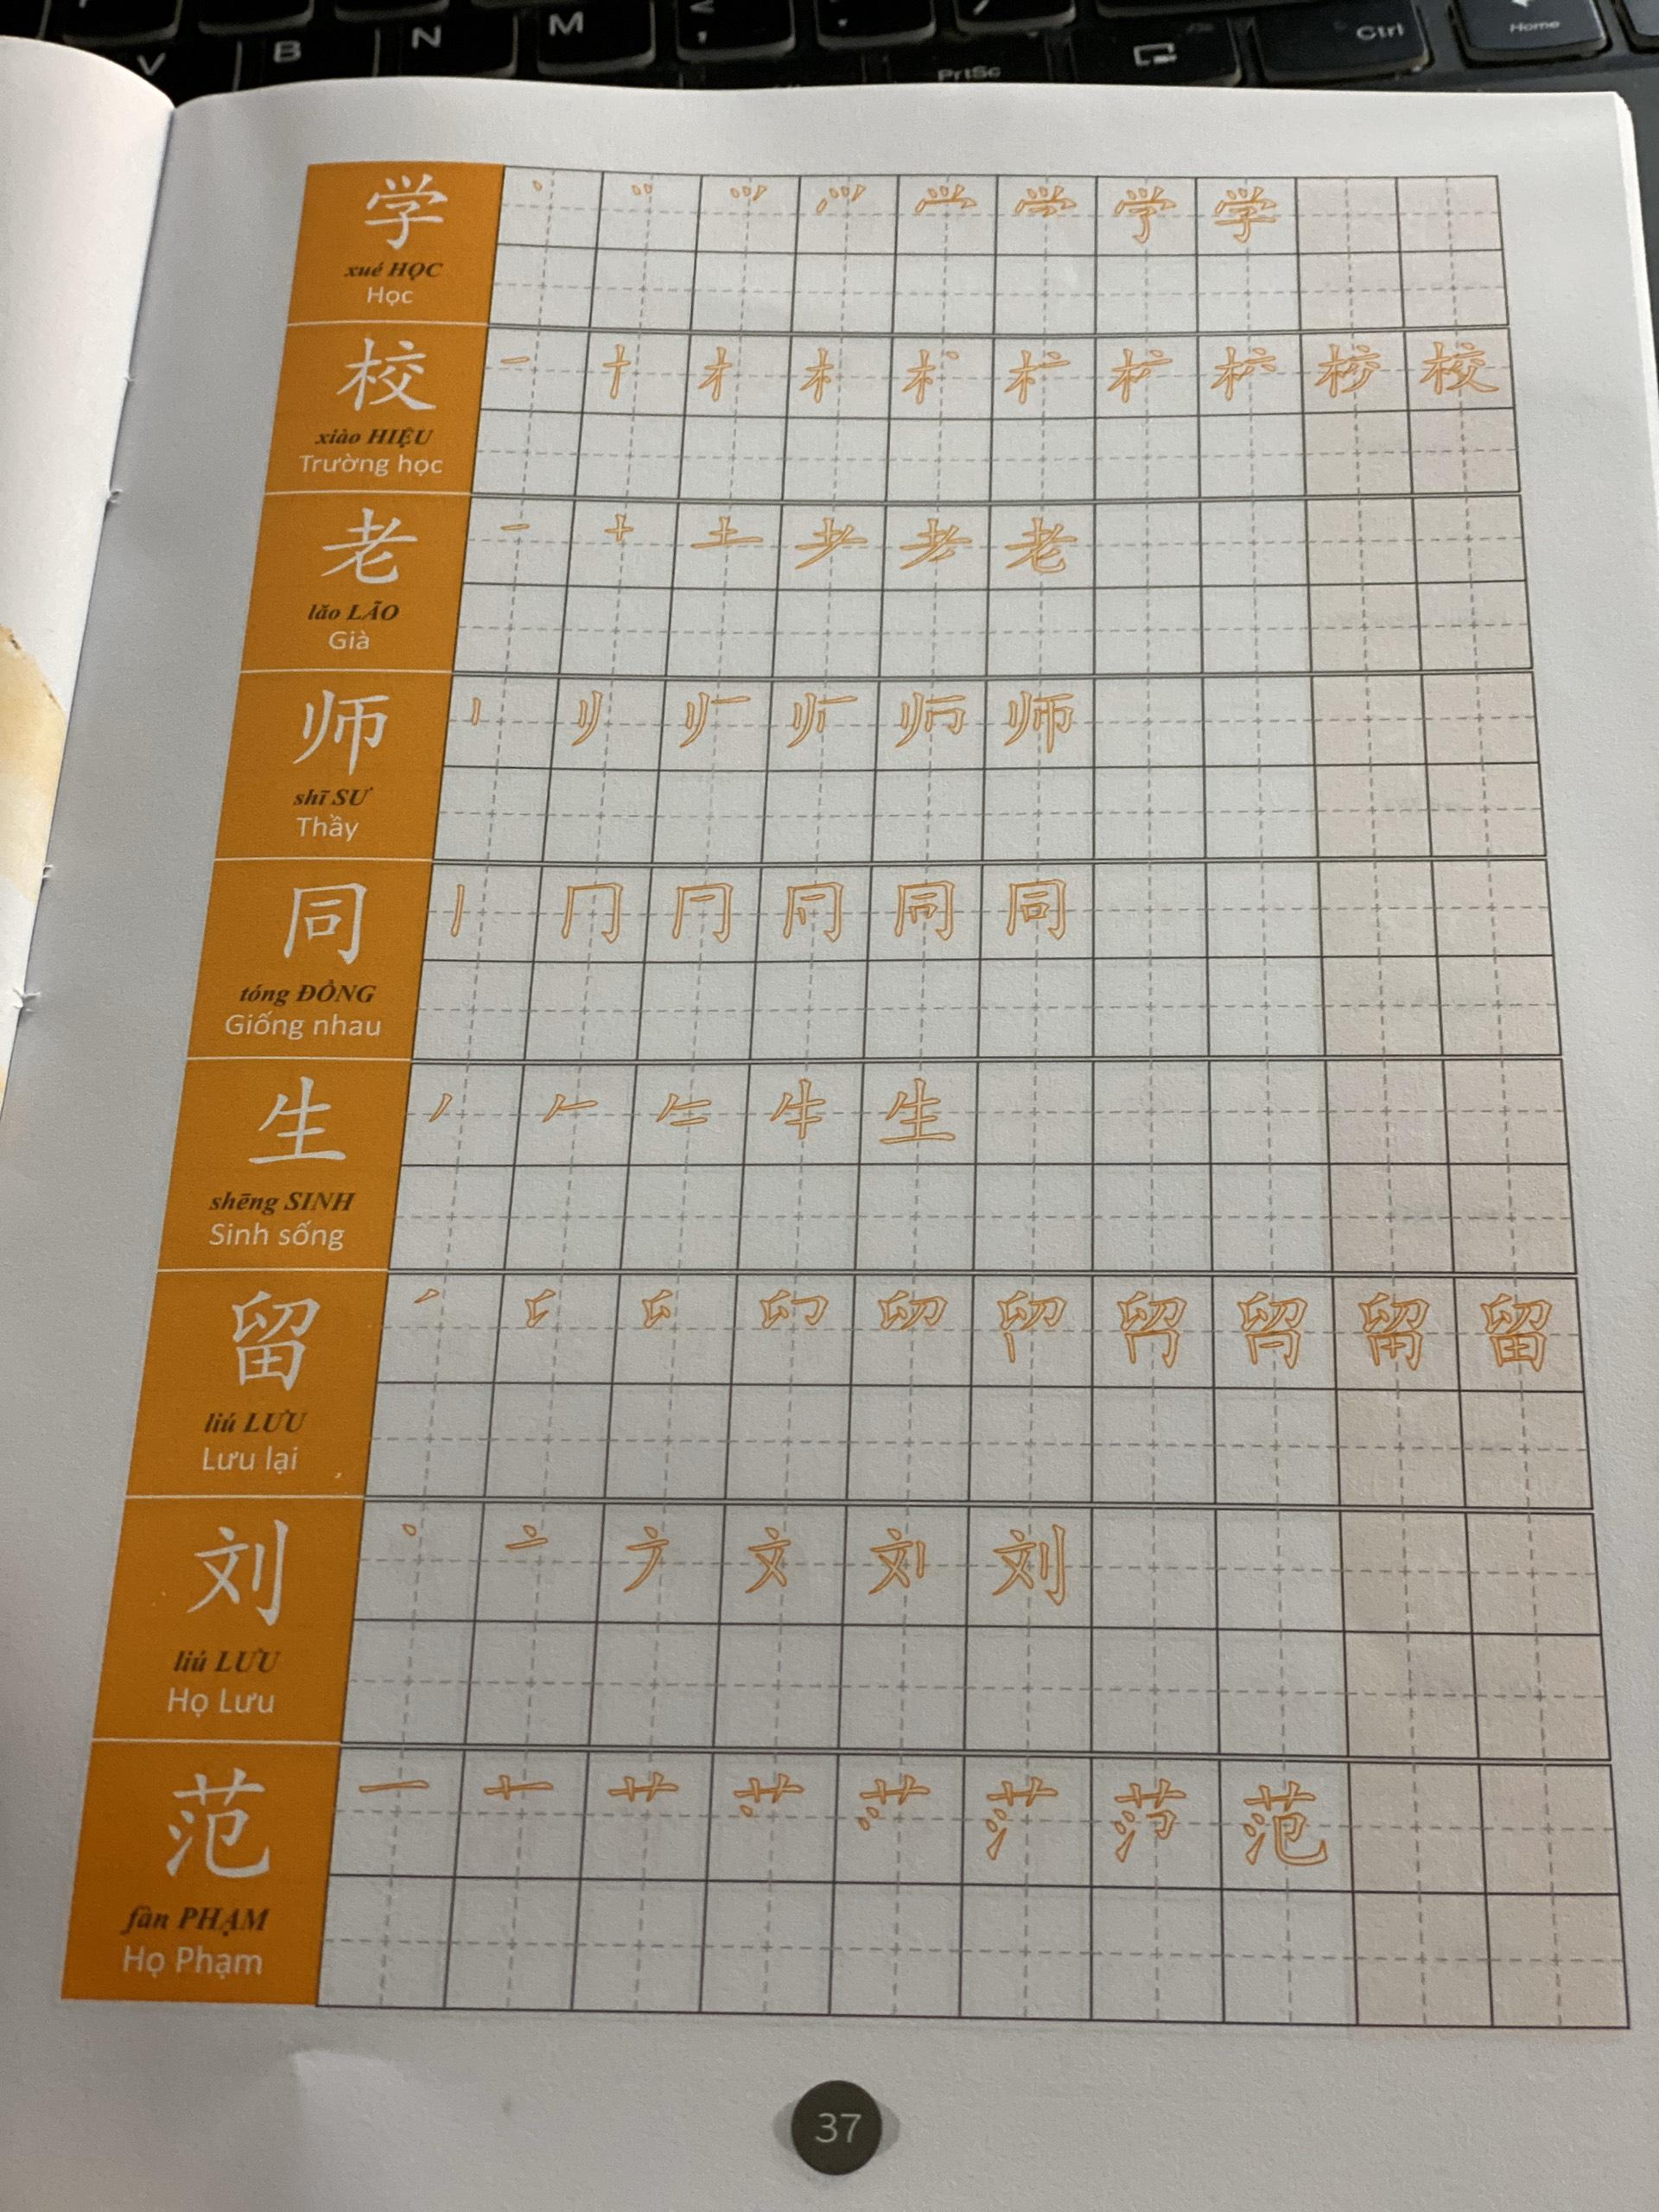 V B N M < , . / PrtSc Ctrl Home
学
xué HỌC
Học
校
xiào HIỆU
Trường học
老
lǎo LÃO
Già
师
shī SƯ
Thầy
同
tóng ĐỒNG
Giống nhau
生
shēng SINH
Sinh sống
留
liú LƯU
Lưu lại
刘
liú LƯU
Họ Lưu
范
fàn PHẠM
Họ Phạm
37